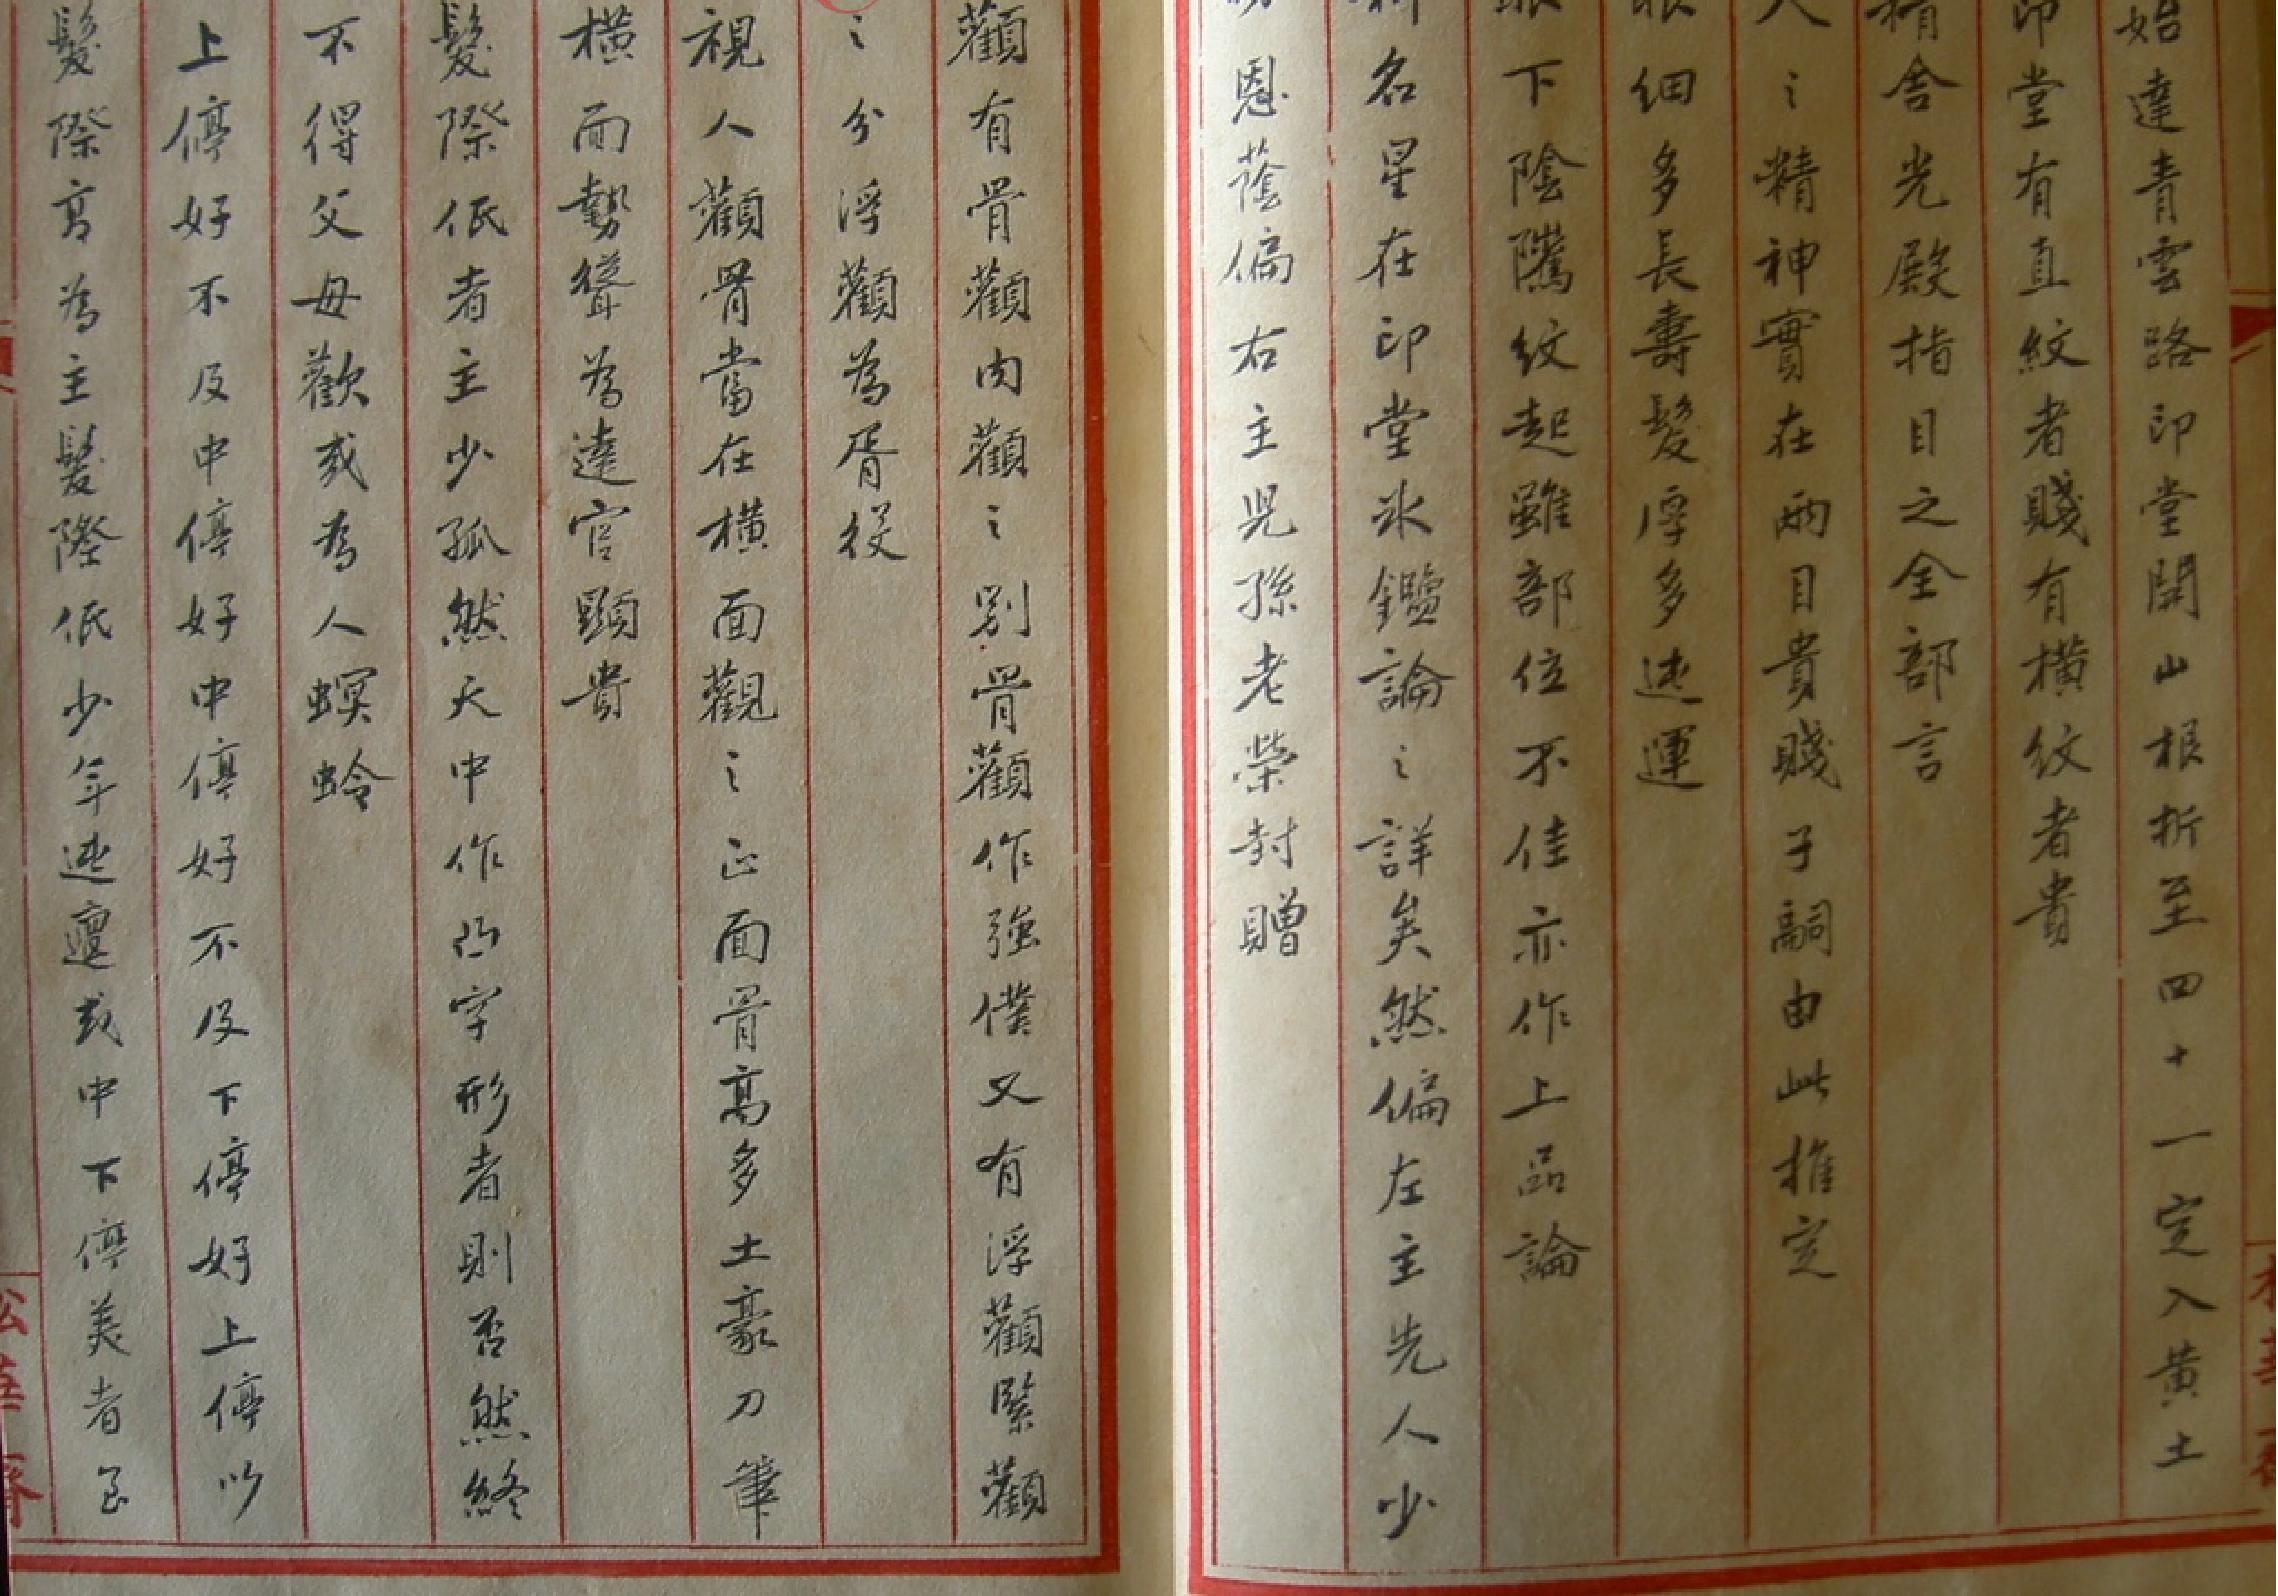 始達青雲路印堂開山根折至四十一定入黄土
印堂有直紋者賤有橫紋者貴
精舍光殿指目之全部言
人之精神實在兩目貴賤子嗣由此推定
根細多長壽髮厚多迍運
眼下陰隲紋起雖部位不佳亦作上品論
名星在印堂冰鑑論之詳矣然偏左主先人少
恩蔭偏右主児孫老榮封贈
顴有骨顴肉顴之別骨顴作強僕又有浮顴緊顴
之分浮顴為胥役
視人顴骨當在橫面觀之正面骨高多土豪刀筆
橫面勢聳為達官顯貴
髮際低者主少孤然天中作凸字形者則否然終
不得父母歡或為人螟蛉
上停好不及中停好中停好不及下停好上停以
髮際高為主髮際低少年迍邅或中下停美者
松華齋